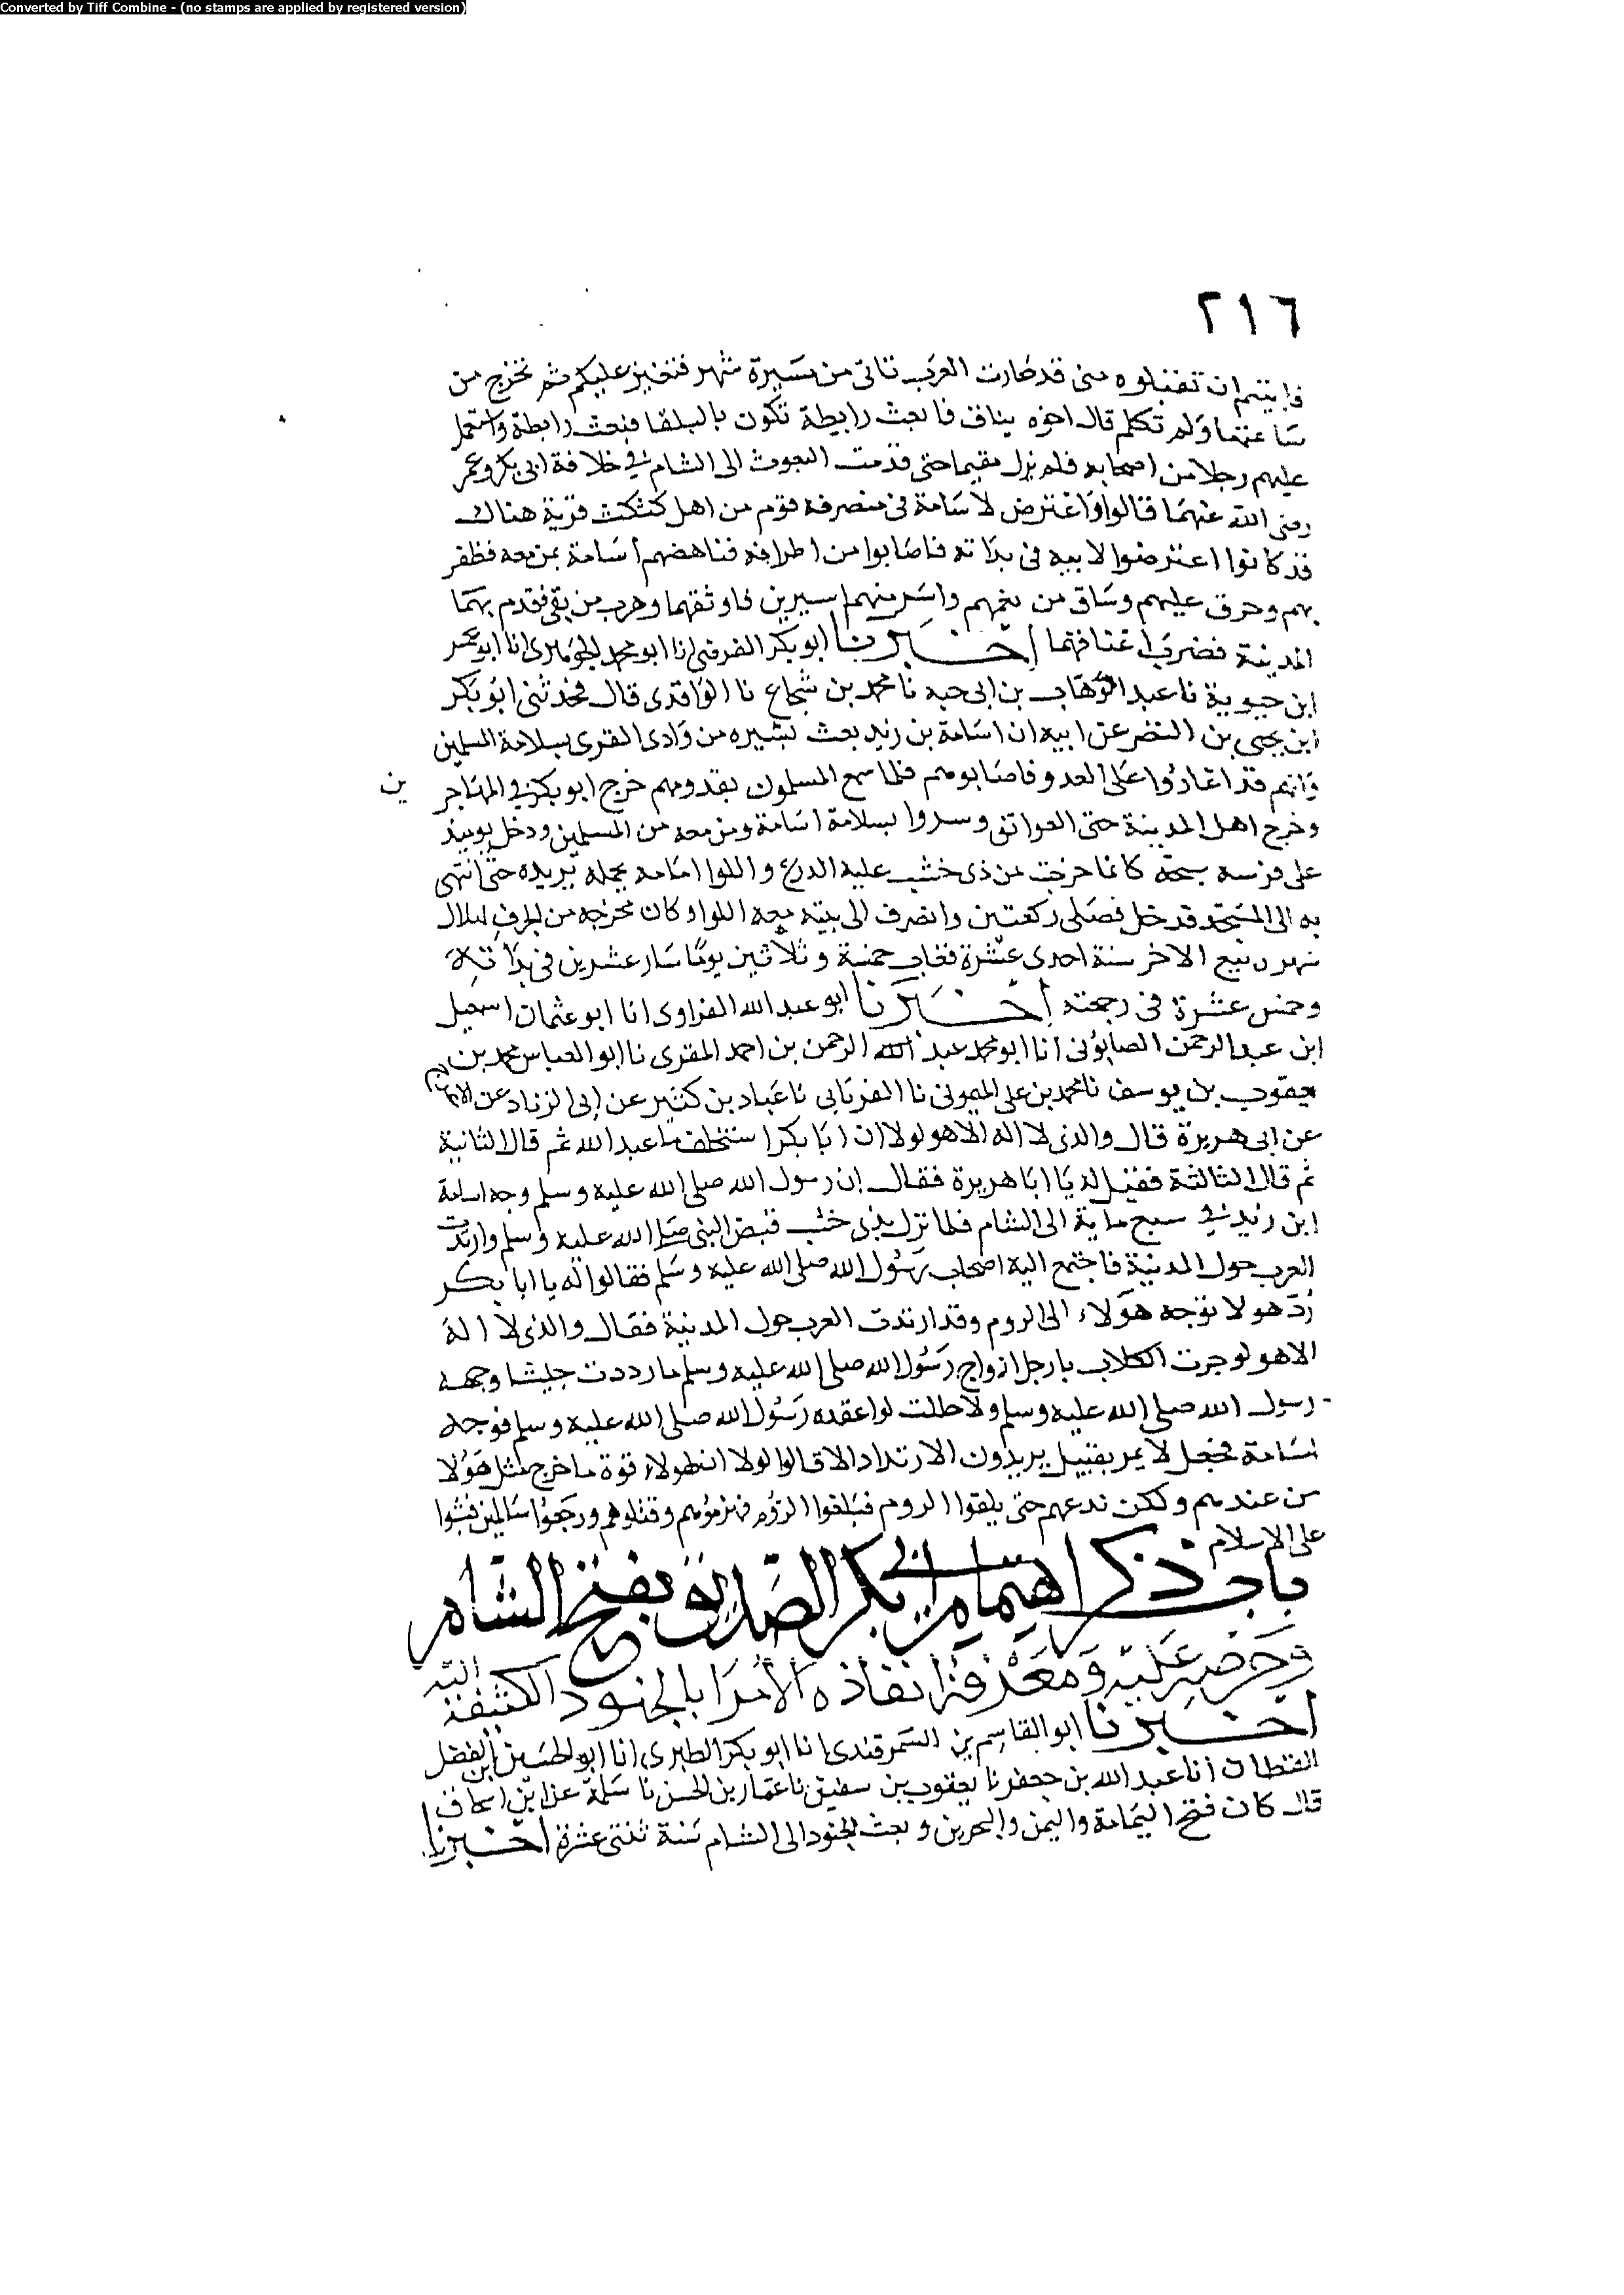 Converted by Tiff Combine - (no stamps are applied by registered version)
٢١٦
فابيتم ان تقبلوه منى قد صارت العرب تاتى من مسيرة شهر فتغير عليكم ثم تخرج من
ساعتها ولم تكلم قال اخوه يناف فابعث رابطة تكون بالبلقا فبعث رابطة واستعمل
عليهم رجلا من اصحابه فلم يزل مقيما حتى قدمت البعوث الى الشام في خلافة ابى بكر وعمر
رضى الله عنهما قالوا واعترض لاسامة فى منصرفه قوم من اهل كثكث قرية هناك
قد كانوا اعترضوا لابيه فى بداته فاصابوا من اطرافه فناهضهم اسامة بمن معه فظفر
بهم وحرق عليهم وساق من نعمهم واسر منهم اسيرين فاوثقهما وهرب من بقى فقدم بهما
المدينة فضرب اعناقهما اخبرنا ابو بكر الفرضى انا ابو محمد الجوهرى انا ابو عمر
ابن حيوية نا عبد الوهاب بن ابى حية نا محمد بن شجاع نا الواقدى قال فحدثنى ابو بكر
ابن يحيى بن النضر عن ابيه ان اسامة بن زيد بعث بشيره من وادى القرى بسلامة المسلمين
وانهم قد اغاروا على العدو فاصابوهم فلما سمع المسلمون بقدومهم خرج ابو بكر في المهاجر
ين
وخرج اهل المدينة حتى العواتق وسروا بسلامة اسامة ومن معه من المسلمين ودخل يوميذ
على فرسه سبحة كانما خرجت من ذى خشب عليه الدرع واللوا امامه يحمله بريدة حتى انتهى
به الى المسجد فدخل فصلى ركعتين وانصرف الى بيته معه اللوا وكان مخرجه من الجرف لهلال
شهر ربيع الاخر سنة احدى عشرة فغاب خمسة وثلاثين يوما سار عشرين فى بداته
وخمس عشرة فى رجعته اخبرنا ابو عبد الله الفراوى انا ابو عثمان اسمعيل
ابن عبد الرحمن الصابونى انا ابو محمد عبد الله الرحمن بن احمد المقرى نا ابو العباس محمد بن
يعقوب بن يوسف نا محمد بن على الميمونى نا الفريابى نا عباد بن كثير عن ابى الزناد عن الاعرج
عن ابى هريرة قال والذى لا اله الا هو لولا ان ابا بكر استخلف ما عبد الله ثم قال الثانية
ثم قال الثالثة فقيل له يا ابا هريرة فقال ان رسول الله صلى الله عليه وسلم وجه اسامة
ابن زيد في سبع ماية الى الشام فلما نزل بذى خشب قبض النبى صلى الله عليه وسلم وارتدت
العرب حول المدينة فاجتمع اليه اصحاب رسول الله صلى الله عليه وسلم فقالوا له يا ابا بكر
رد هولا توجه هولاء الى الروم وقد ارتدت العرب حول المدينة فقال والذى لا اله
الا هو لو جرت الكلاب بارجل ازواج رسول الله صلى الله عليه وسلم ما رددت جيشا وجهه
رسول الله صلى الله عليه وسلم ولا حللت لوا عقده رسول الله صلى الله عليه وسلم فوجه
اسامة فجعل لا يمر بقبيل يريدون الارتداد الا قالوا لولا ان لهولاء قوة ما خرج مثل هولا
من عندهم ولكن ندعهم حتى يلقوا الروم فبلغوا الروم فهزموهم وقتلوهم ورجعوا سالمين فثبتوا
على الاسلام
باب ذكر اهتمام ابى بكر الصديق بفتح الشام
وحرصه عليه ومعرفة انفاذه الامرا بالجنود الكثيفة اليه
اخبرنا ابو القاسم بن السمرقندى انا ابو بكر الطبرى انا ابو الحسين ابن الفضل
القطان انا عبد الله بن جعفر نا يعقوب بن سفين نا عمار بن الحسن نا سلمة عن ابن اسحاق
قال كان فتح اليمامة واليمن والبحرين وبعث الجنود الى الشام سنة ثنتى عشرة اخبرنا